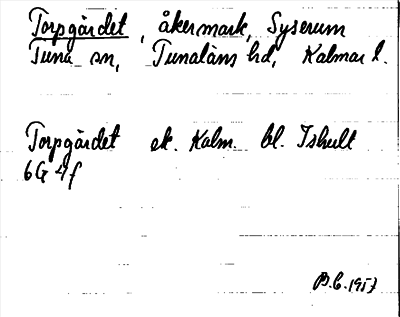 Torpgärdet, åkermark, Syserum
Tuna sn, Tunaläns hd, Kalmar l.
Torpgärdet ek. Kalm. bl. Ishult
6G 4f
B.C. 1957